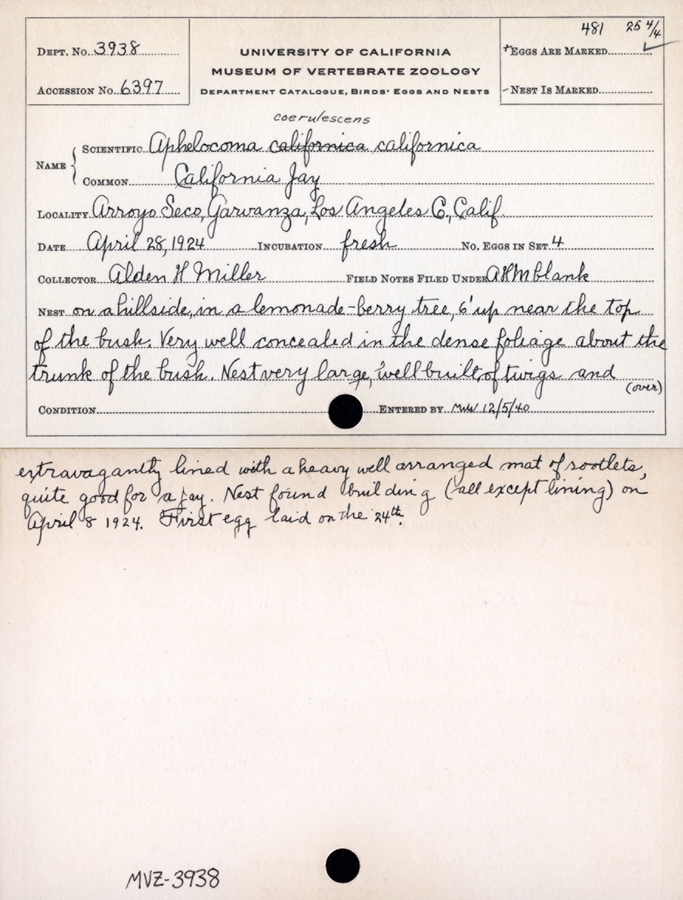 481 25 4/4
Dept. No. 3938
UNIVERSITY OF CALIFORNIA
+Eggs Are Marked
MUSEUM OF VERTEBRATE ZOOLOGY
Accession No. 6397
Department Catalogue, Birds' Eggs and Nests
-Nest Is Marked
coerulescens
Name
Scientific Aphelocoma californica californica
Common California Jay
Locality Arroyo Seco, Garvanza, Los Angeles C, Calif.
Date April 28, 1924 Incubation fresh No. Eggs in Set 4
Collector Alden H Miller Field Notes Filed Under AHM blank
Nest on a hillside, in a lemonade-berry tree, 6' up near the top
of the bush. Very well concealed in the dense foliage about the
trunk of the bush. Nest very large, well built, of twigs and
(over)
Condition Entered by MWW 12/5/40
extravagantly lined with a heavy well arranged mat of rootlets,
quite good for a jay. Nest found building (all except lining) on
April 8 1924. First egg laid on the 24th.
MVZ-3938